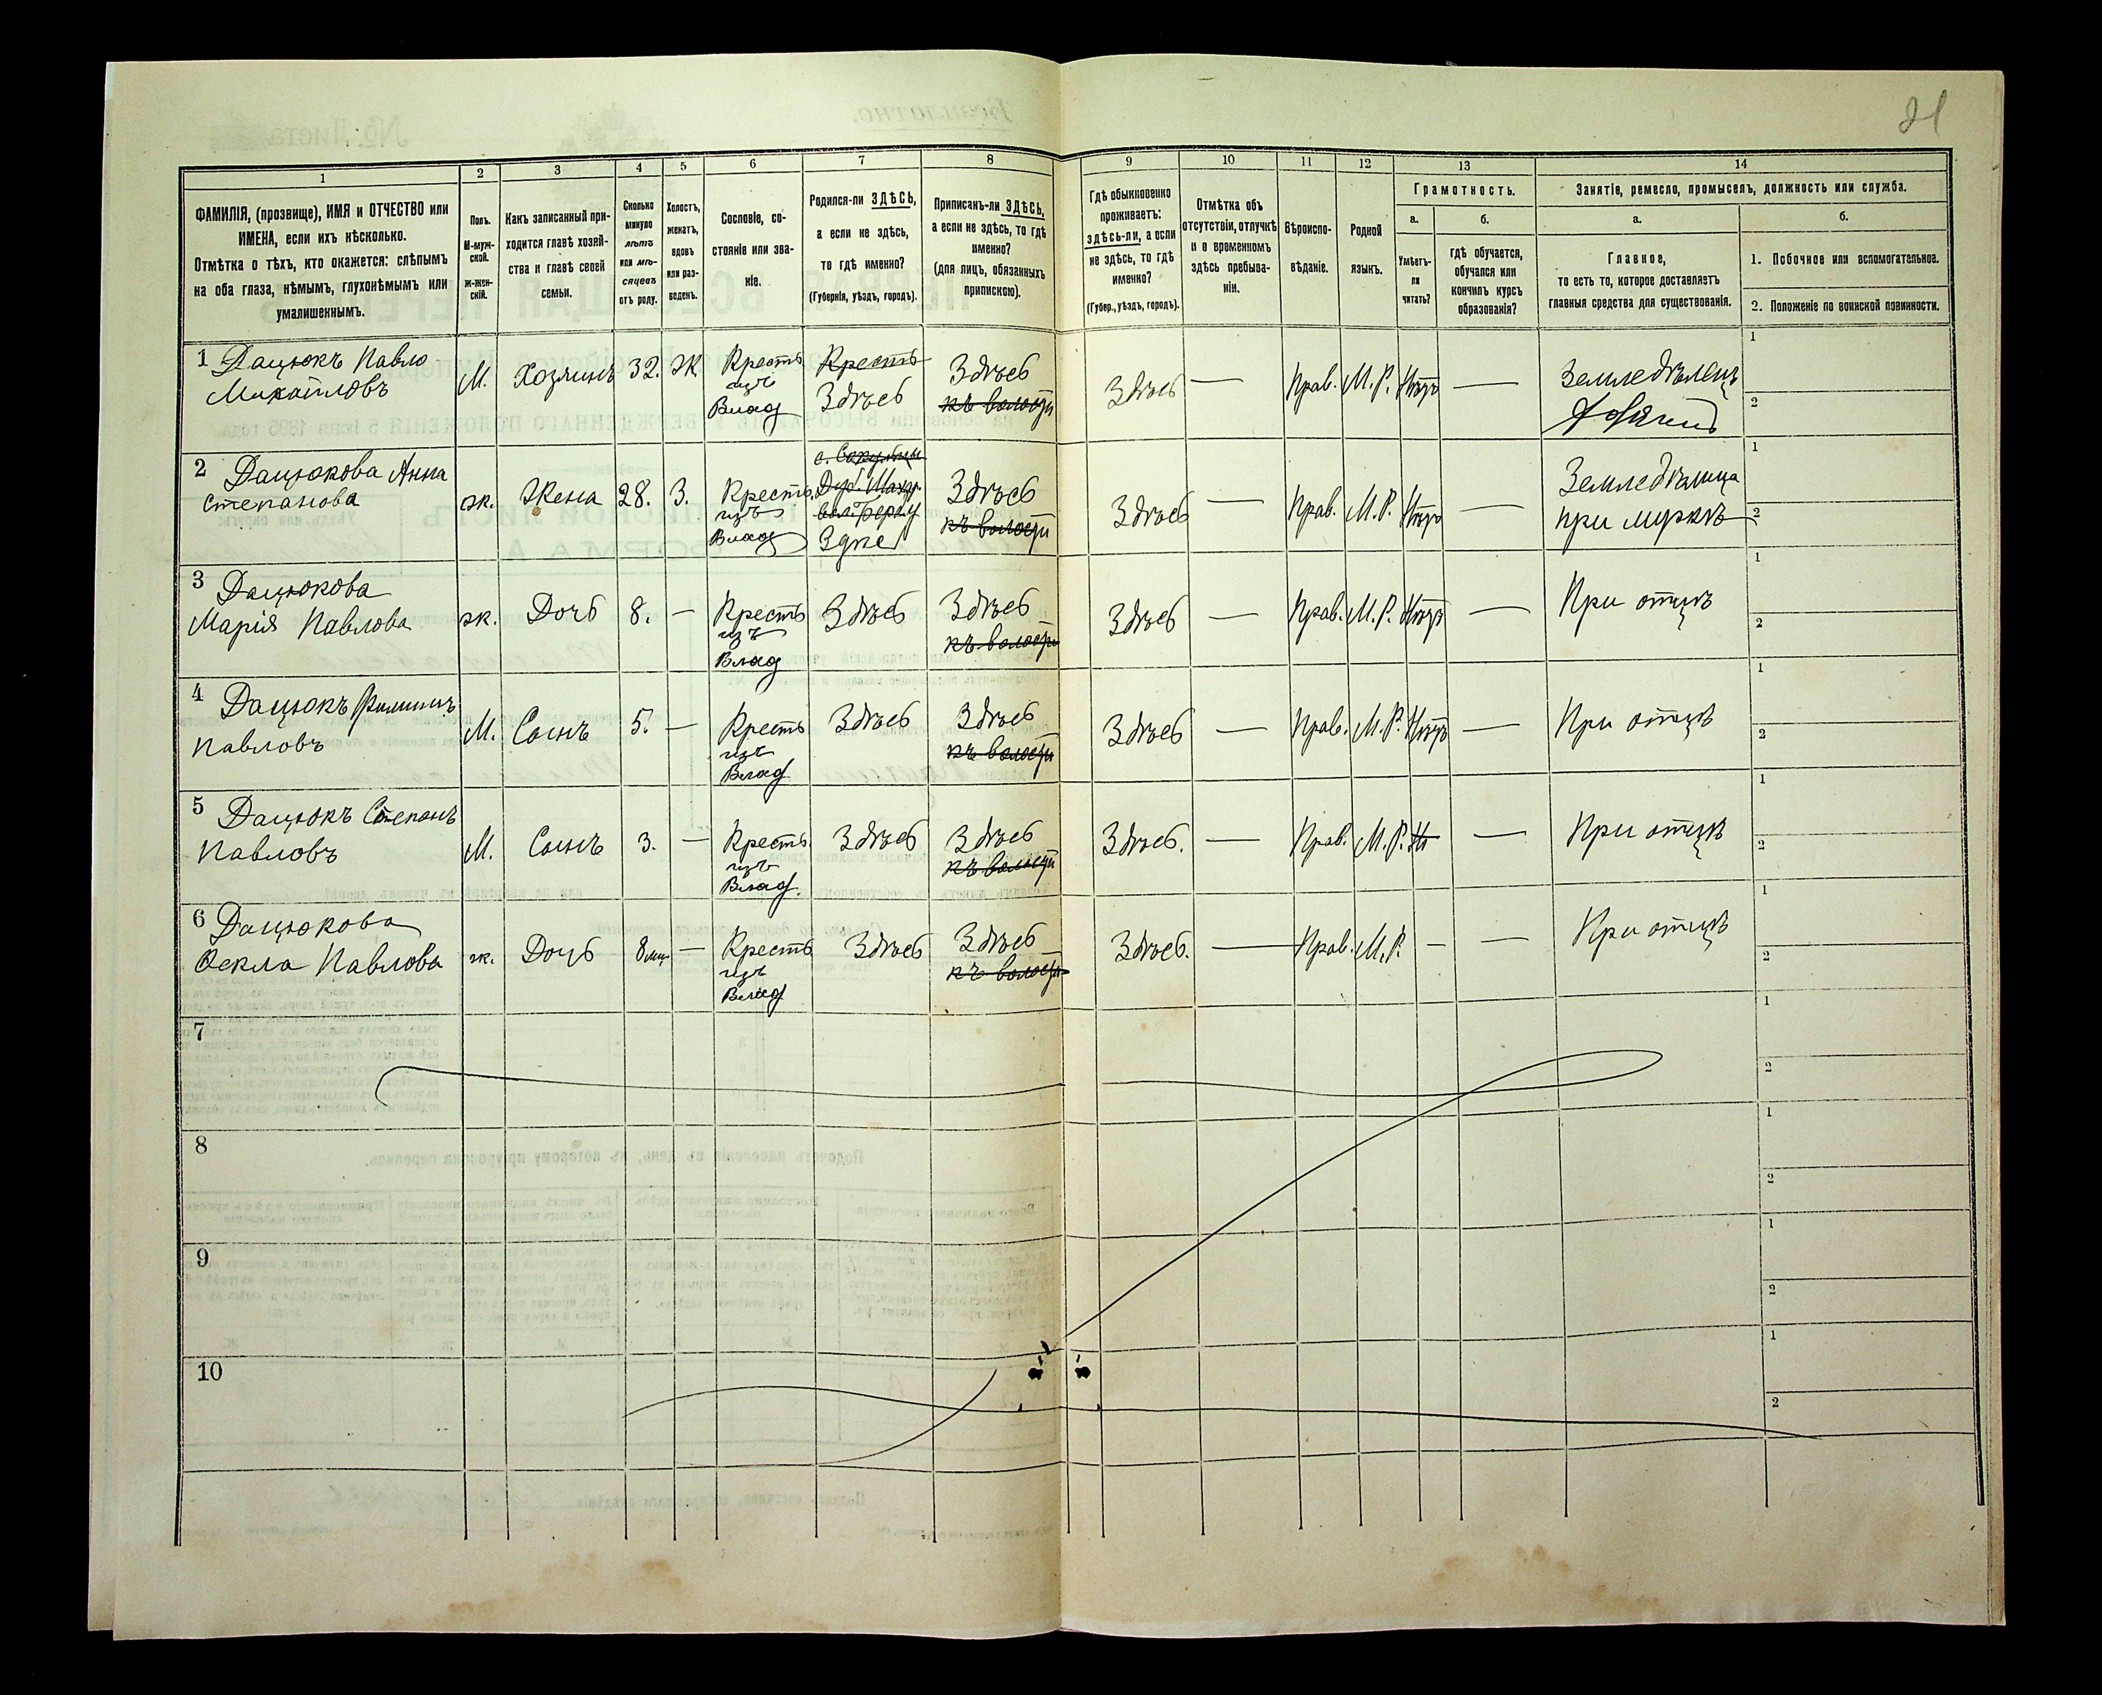 21
1 2 3 4 5 6 7 8 9 10 11 12 13 14
ФАМИЛІЯ, (прозвище), ИМЯ и ОТЧЕСТВО или
ИМЕНА, если ихъ нѣсколько.
Отмѣтка о тѣхъ, кто окажется: слѣпымъ
на оба глаза, нѣмымъ, глухонѣмымъ или
умалишеннымъ.
Полъ.
М-муж-
ской.
Ж-жен-
скій.
Какъ записанный при-
ходится главѣ хозяй-
ства и главѣ своей
семьи.
Сколько
минуло
лѣтъ
или мѣ-
сяцевъ
отъ роду.
Холостъ,
женатъ,
вдовъ
или раз-
веденъ.
Сословіе, со-
стояніе или зва-
ніе.
Родился-ли ЗДѢСЬ,
а если не здѣсь,
то гдѣ именно?
(Губернія, уѣздъ, городъ).
Приписанъ-ли ЗДѢСЬ,
а если не здѣсь, то гдѣ
именно?
(для лицъ, обязанныхъ
припискою).
Гдѣ обыкновенно
проживаетъ:
здѣсь-ли, а если
не здѣсь, то гдѣ
именно?
(Губер., уѣздъ, городъ).
Отмѣтка объ
отсутствіи, отлучкѣ
и о временномъ
здѣсь пребыва-
ніи.
Вѣроиспо-
вѣданіе.
Родной
языкъ.
Грамотность.
а. б.
Умѣетъ-
ли
читать?
гдѣ обучается,
обучался или
кончилъ курсъ
образованія?
Занятіе, ремесло, промыселъ, должность или служба.
а. б.
Главное,
то есть то, которое доставляетъ
главныя средства для существованія.
1. Побочное или вспомогательное.
2. Положеніе по воинской повинности.
1 Дацюкъ Павло
Михайловъ
М. Хозяинъ 32. Ж.
Крестъ
изъ
Влад
Крестъ
Здѣсь
Здѣсь
къ волости
Здѣсь — Прав. М.Р. Нѣтъ —
Земледѣлецъ
1
2
2 Дацюкова Анна
Степанова
ж. Жена 28. З.
Крестъ.
изъ
Влад
Здѣсь
къ волости
Здѣсь — Прав. М.Р. Нѣтъ —
Земледѣлица
при мужѣ
1
2
3 Дацюкова
Марія Павлова
ж. Дочь 8. —
Крестъ
изъ
Влад
Здѣсь
Здѣсь
къ волости
Здѣсь — Прав. М.Р. Нѣтъ —
При отцѣ
1
2
4 Дацюкъ Филиппъ
Павловъ
М. Сынъ 5. —
Крестъ
изъ
Влад
Здѣсь
Здѣсь
къ волости
Здѣсь — Прав. М.Р. Нѣтъ —
При отцѣ
1
2
5 Дацюкъ Степанъ
Павловъ
М. Сынъ 3. —
Крестъ
изъ
Влад.
Здѣсь
Здѣсь
къ волости
Здѣсь. — Прав. М.Р. —
При отцѣ
1
2
6 Дацюкова
Ѳекла Павлова
ж. Дочь 8 мц —
Крестъ
изъ
Влад
Здѣсь
Здѣсь
къ волости
Здѣсь. — Прав. М.Р. — —
При отцѣ
1
2
7
1
2
8
1
2
9
1
2
10
1
2